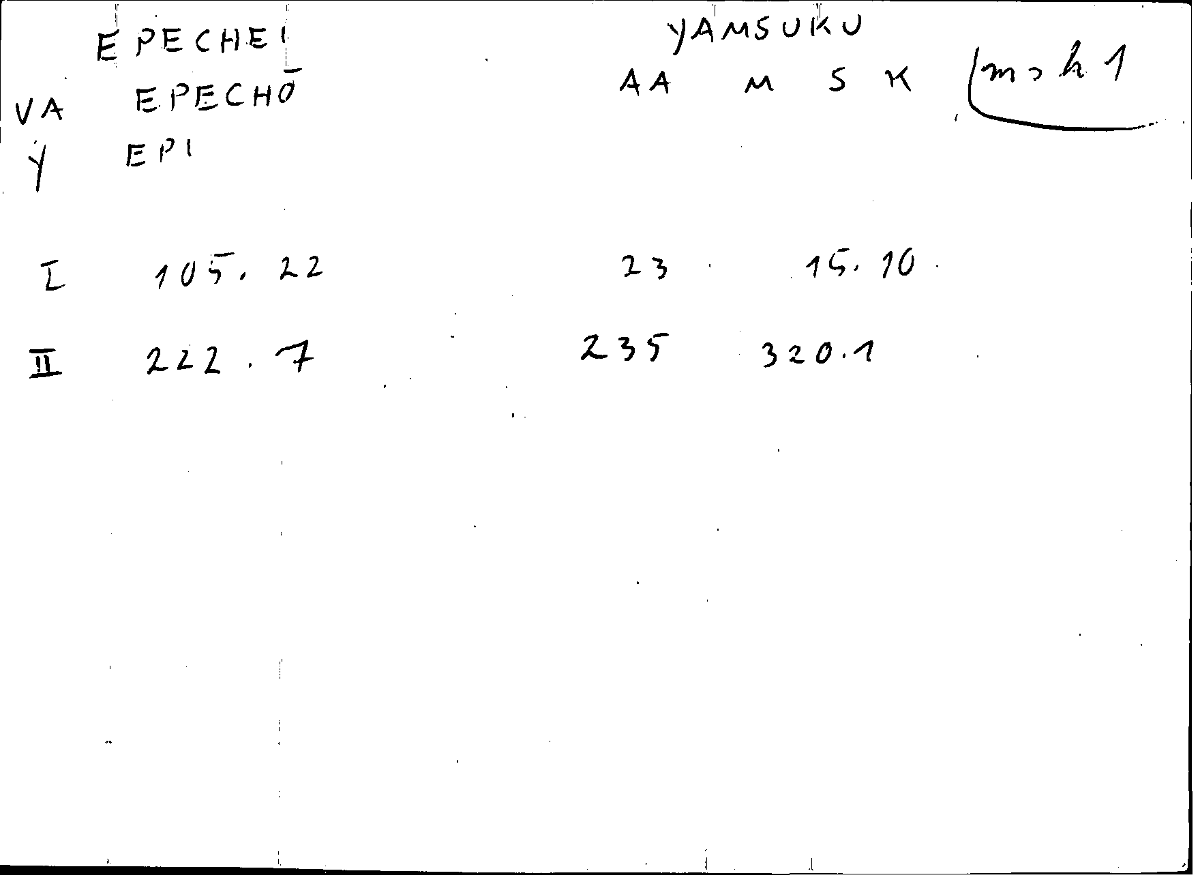 EPECHEI YAMSUKU
VA EPECHŌ AA M S K
Y EPI
I 105. 22 23 . 15. 10 .
II 222 . 7 235 320.1